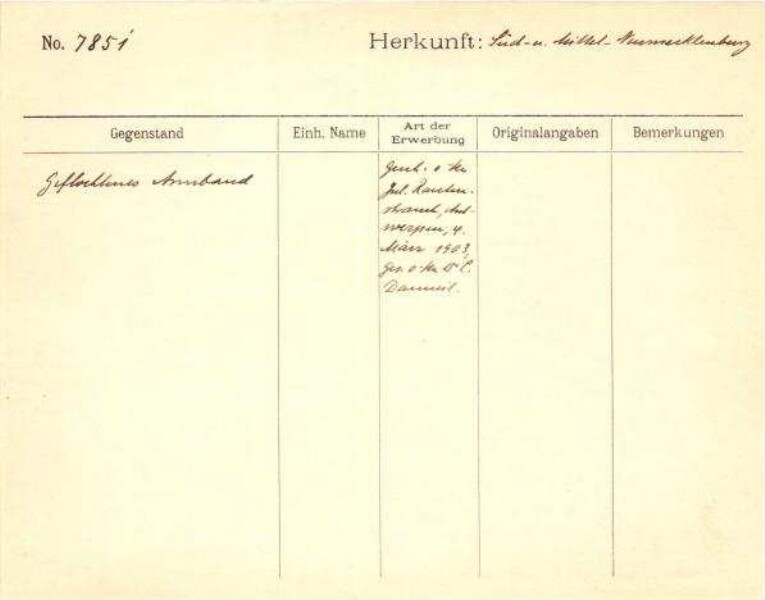 No. 7851
Herkunft: Süd- u. Mittel-Neumecklenburg
Gegenstand
Einh. Name
Art der Erwerbung
Originalangaben
Bemerkungen
Geflochtenes Armband
Gesch. v. Hn
Jul. Rauten-
strauch, Ant-
werpen, 4.
März 1903,
ges. v. Hn C.
Dammeil.